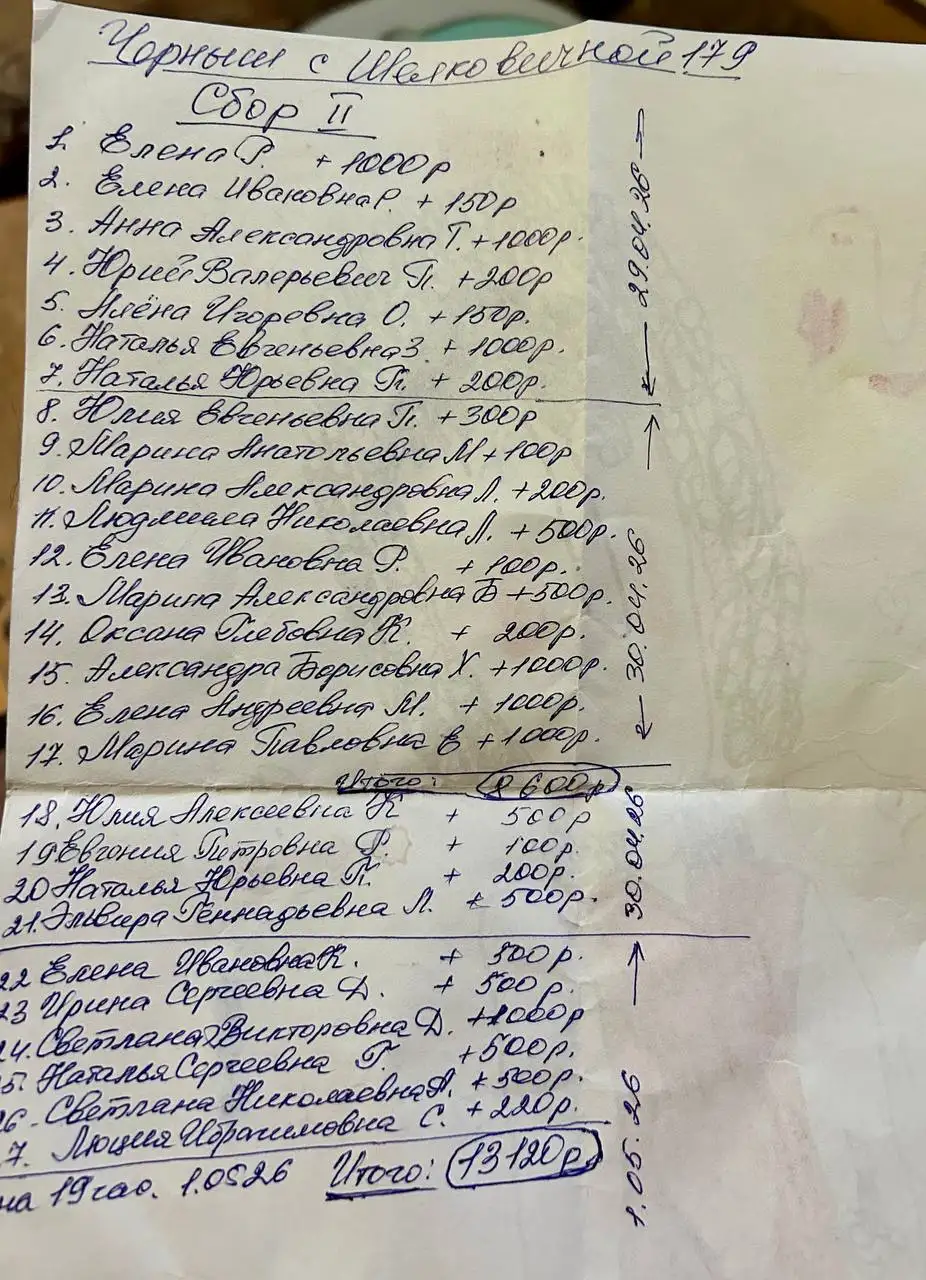 Черныш с Шелковичной 179
Сбор II
1. Елена Р. + 1000р
2. Елена Ивановна Р. + 150р
3. Анна Александровна Т. + 1000р.
4. Юрий Валерьевич П. + 200р
5. Алёна Игоревна О. + 150р.
6. Наталья Евгеньевна З. + 1000р.
7. Наталья Юрьевна П. + 200р.
← 29.04.26 →
8. Юлия Евгеньевна П. + 300р
9. Марина Анатольевна М + 100р
10. Марина Александровна Л. + 200р.
11. Людмила Николаевна Л. + 500р.
12. Елена Ивановна Р. + 100р.
13. Марина Александровна Б + 500р.
14. Оксана Глебовна К. + 200р.
15. Александра Борисовна Х. + 1000р.
16. Елена Андреевна М. + 1000р.
17. Марина Павловна Е + 1000р.
← 30.04.26 →
Итого: 8600р
18. Юлия Алексеевна К + 500р
19 Евгения Петровна Р. + 100р.
20 Наталья Юрьевна П. + 200р.
21. Эльвира Геннадьевна Л. + 500р.
30.04.26
22 Елена Ивановна К. + 500р.
23 Ирина Сергеевна Д. + 500р.
24. Светлана Викторовна Д. + 1000р
5. Наталья Сергеевна Г. + 500р.
26. Светлана Николаевна А. + 500р.
7. Люция Ибрагимовна С. + 220р.
1.05.26 →
на 19 час. 1.0526 Итого: 13120р.